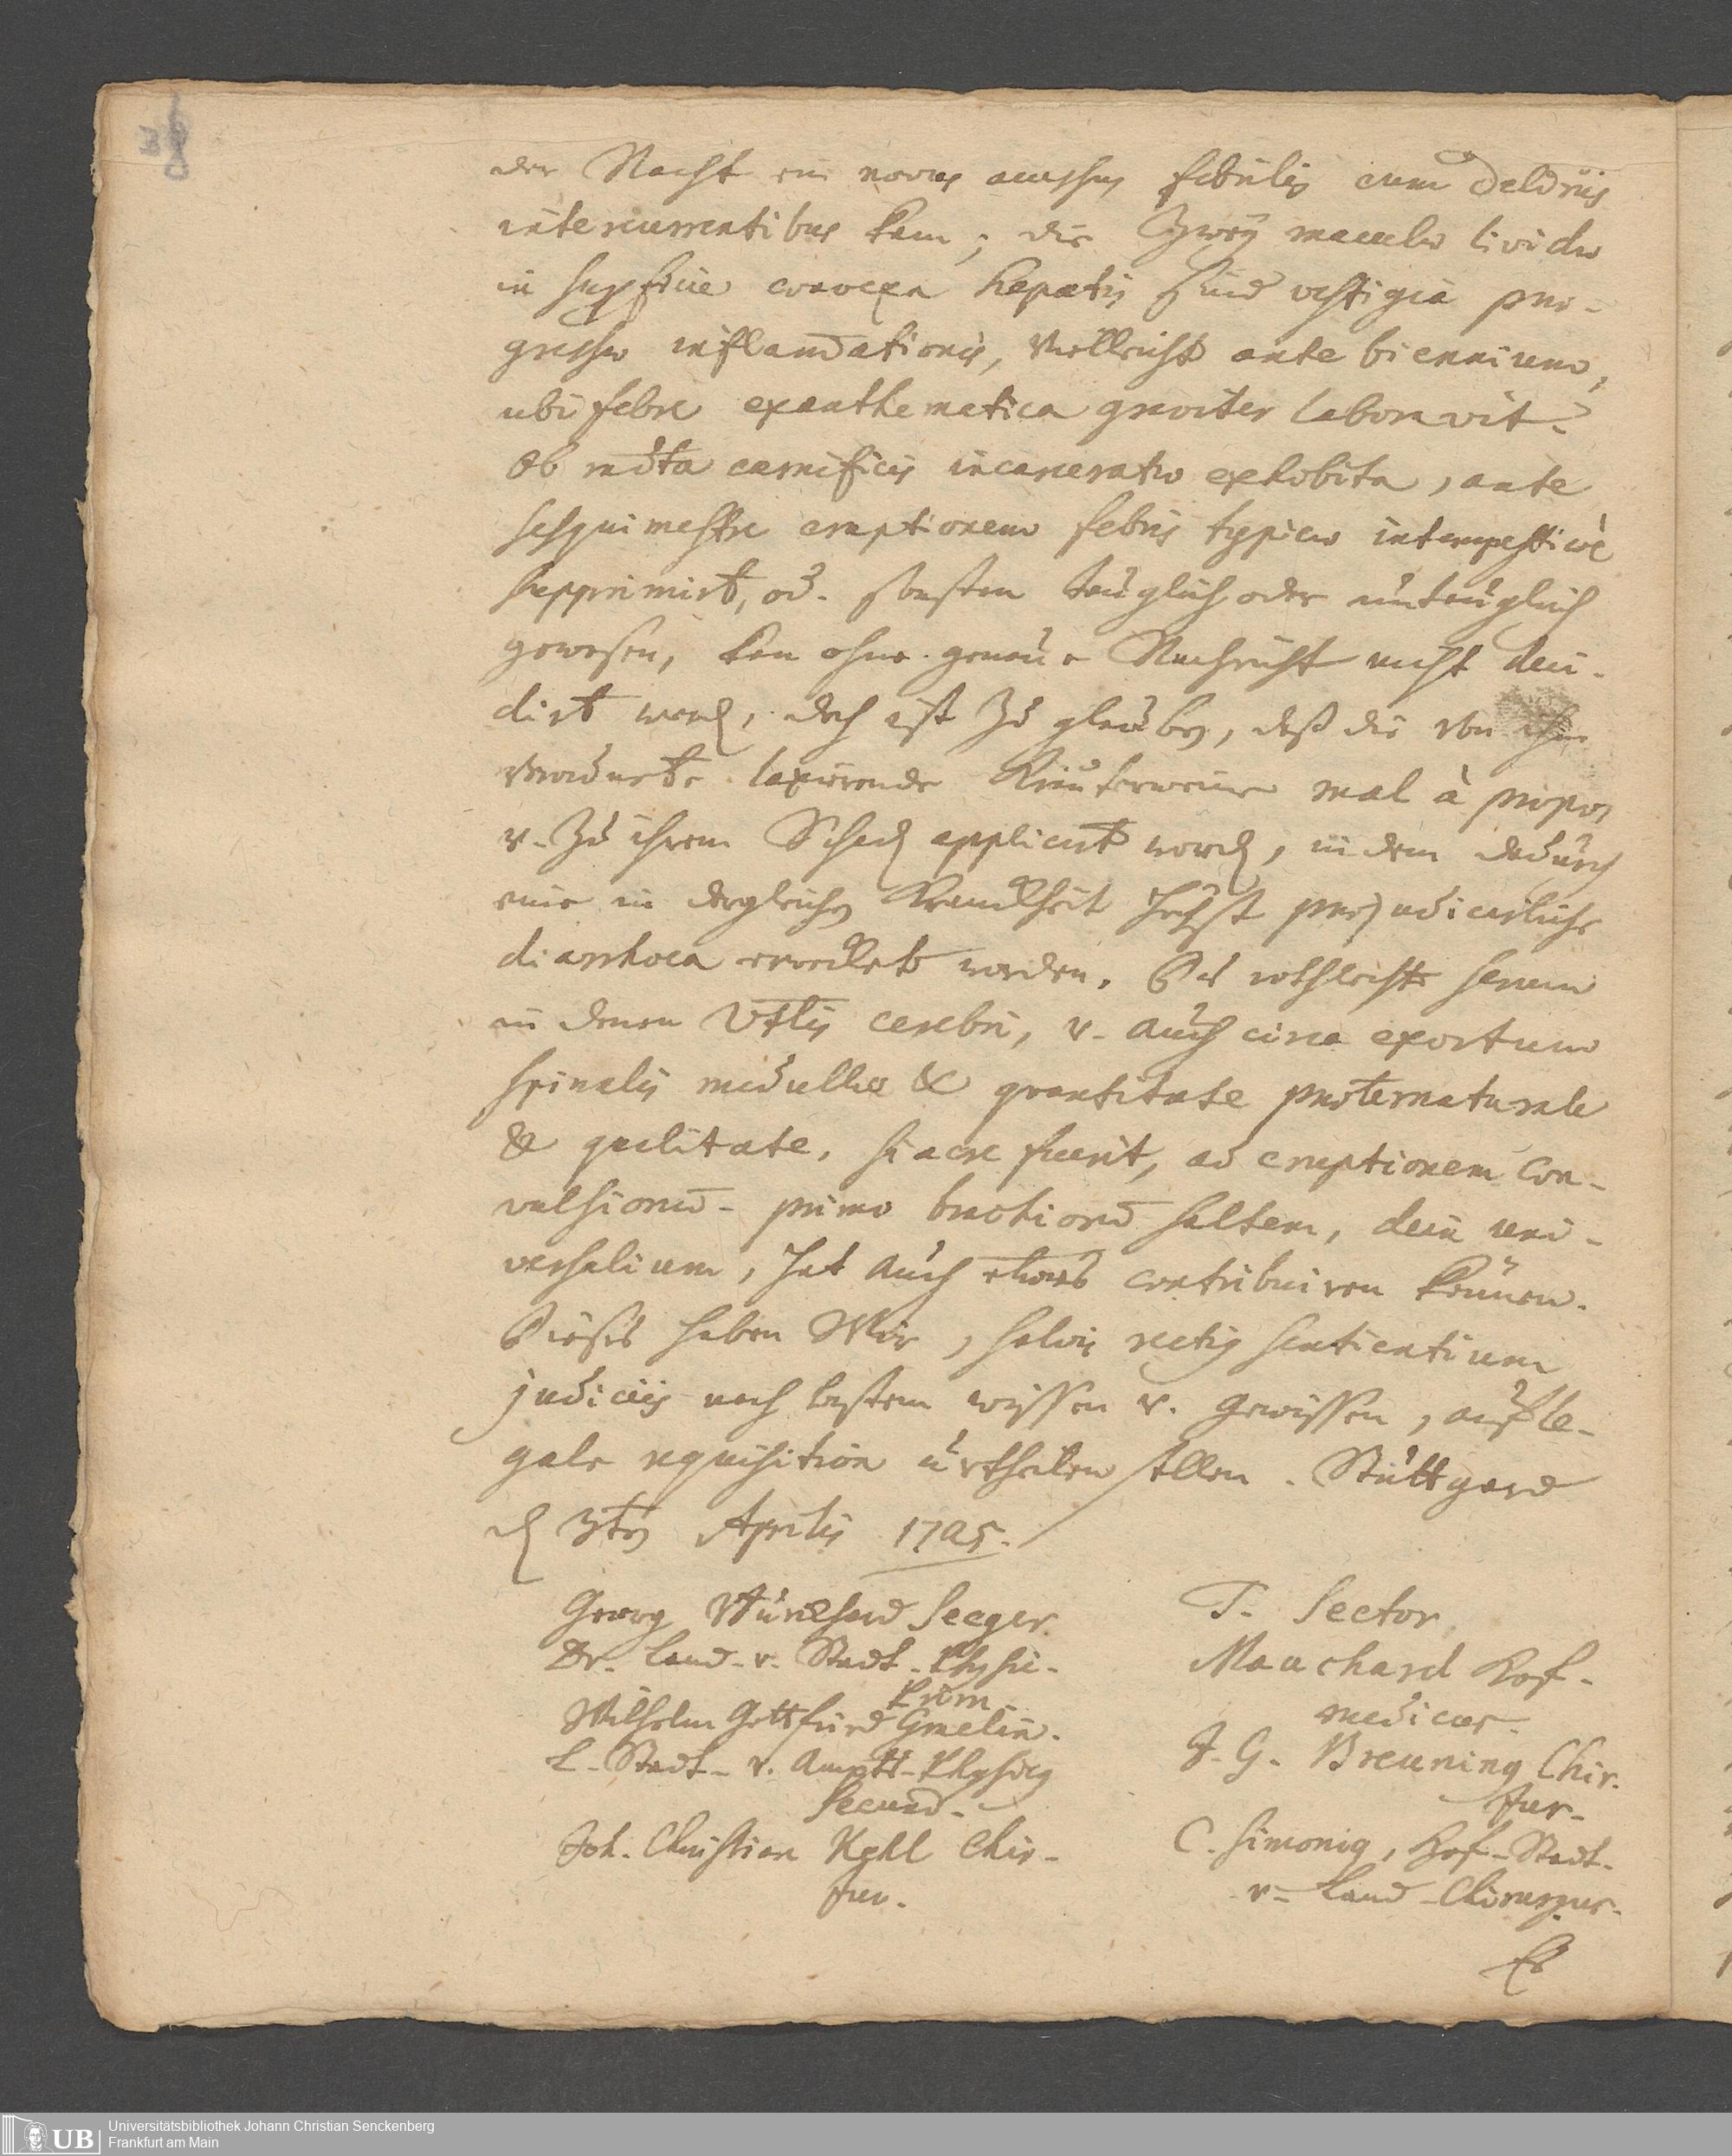 38
der Nacht ein novus accessus febrilis cum deliriis
intercurrentibus kam; die Zweÿ maculæ lividæ
in superficie convexa hepatis sind vestigia præ-
gressæ inflammationis, Vielleicht ante biennium,
ubi febre exanthematica graviter laboravit.
Ob mdta carnificis incarcerati exhibita, ante
sesquimestre eruptionem febris typicæ intempestivè
supprimirt, od. sonsten tauglich oder untauglich
gewesen, kan ohne genaue Nachricht nicht deci-
dirt werden, doch ist zu glauben, daß die von ihm
verordnete laxirende Kräuterweine mal à propos
v. Zu ihrem Schaden applicirt worden, in dem dadurch
eine in dergleichen Kranckheit höchst præjudicirliche
diarrhoea erwecket worden. Das röthlechte serum
in denen Vtlis cerebri, v. auch circa exortum
spinalis medullæ & quantitate præternaturale
& qualitate, si acre fuerit, ad eruptionem con-
vulsionum primo brachiorum saltem, dein uni-
versalium, hat auch etwas contribuiren können.
Dieses haben Wir, salvis rectius sentientium
judiciis nach bestem wissen v. gewissen, auf le-
gale requisition urtheilen sollen. Stuttgard
den 3ten Aprilis 1725.
Georg Burckhard Seeger.
Dr. Land- v. Stadt-Physi-
Prim.
Wilhelm Gottfried Gmelin.
L. Stadt- v. Ampts-Physicus
Secund.
Joh. Christian Kehl Chir.
Jur.
T. Sector,
Mauchard Hof-
medicus.
J. G. Breuning Chir.
Jur.
C. Simonis, Hof-Stadt-
v. Land-Chirurgus.
Es
UB
Universitätsbibliothek Johann Christian Senckenberg
Frankfurt am Main